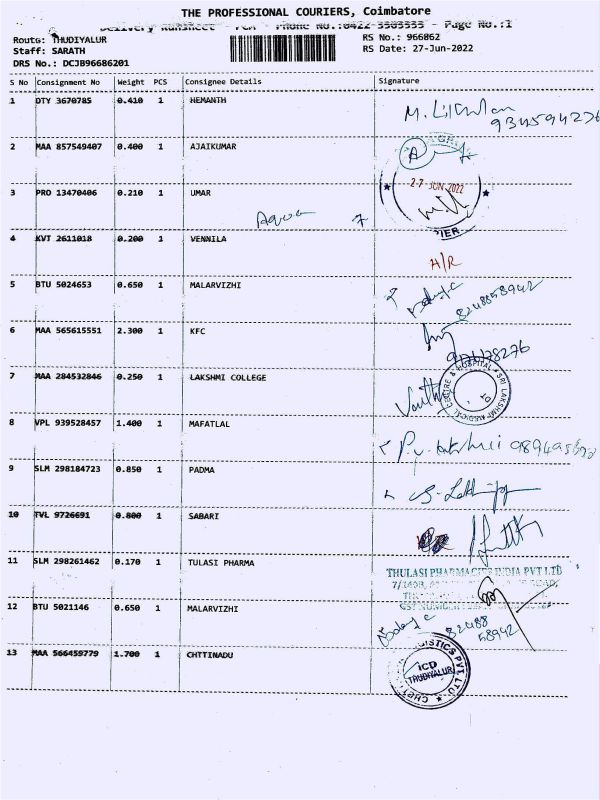 THE PROFESSIONAL COURIERS, Coimbatore
Delivery Runsheet - PCM - Phone No.:0422-3503535 - Page No.:1
Route: THUDIYALUR
RS No.: 966862
Staff: SARATH
RS Date: 27-Jun-2022
DRS No.: DCJB96686201
S No Consignment No Weight PCS Consignee Details Signature
1 DTY 3670785 0.410 1 HEMANTH
M.
2 MAA 857549407 0.400 1 AJAIKUMAR
3 PRO 13470406 0.210 1 UMAR
27 JUN 2022
4 KVT 2611018 0.200 1 VENNILA
H/R
5 BTU 5024653 0.650 1 MALARVIZHI
8248858942
6 MAA 565615551 2.300 1 KFC
7 MAA 284532846 0.250 1 LAKSHMI COLLEGE
SRI LAKSHMI MEDICAL CENTRE & HOSPITAL
8 VPL 939528457 1.400 1 MAFATLAL
9 SLM 298184723 0.850 1 PADMA
10 TVL 9726691 0.800 1 SABARI
11 SLM 298261462 0.170 1 TULASI PHARMA
THULASI PHARMACIES INDIA PVT LTD
12 BTU 5021146 0.650 1 MALARVIZHI
82488
58942
13 MAA 566459779 1.700 1 CHTTINADU
ICD
THUDIYALUR